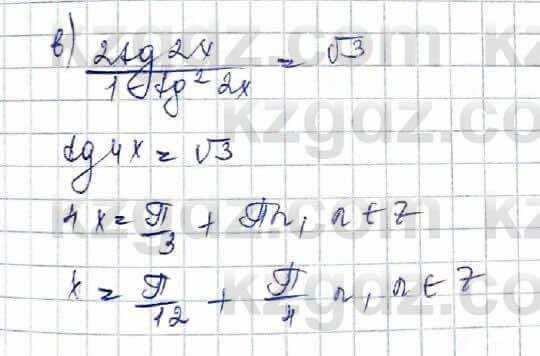 в) 2tg 2x / 1 - tg² 2x = √3
tg 4x = √3
4x = π/3 + πn, n ∈ Z
x = π/12 + π/4 n, n ∈ Z
kzgdz.com